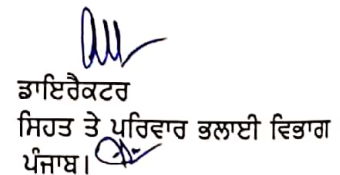 ਡਾਇਰੈਕਟਰ
ਸਿਹਤ ਤੇ ਪਰਿਵਾਰ ਭਲਾਈ ਵਿਭਾਗ
ਪੰਜਾਬ।